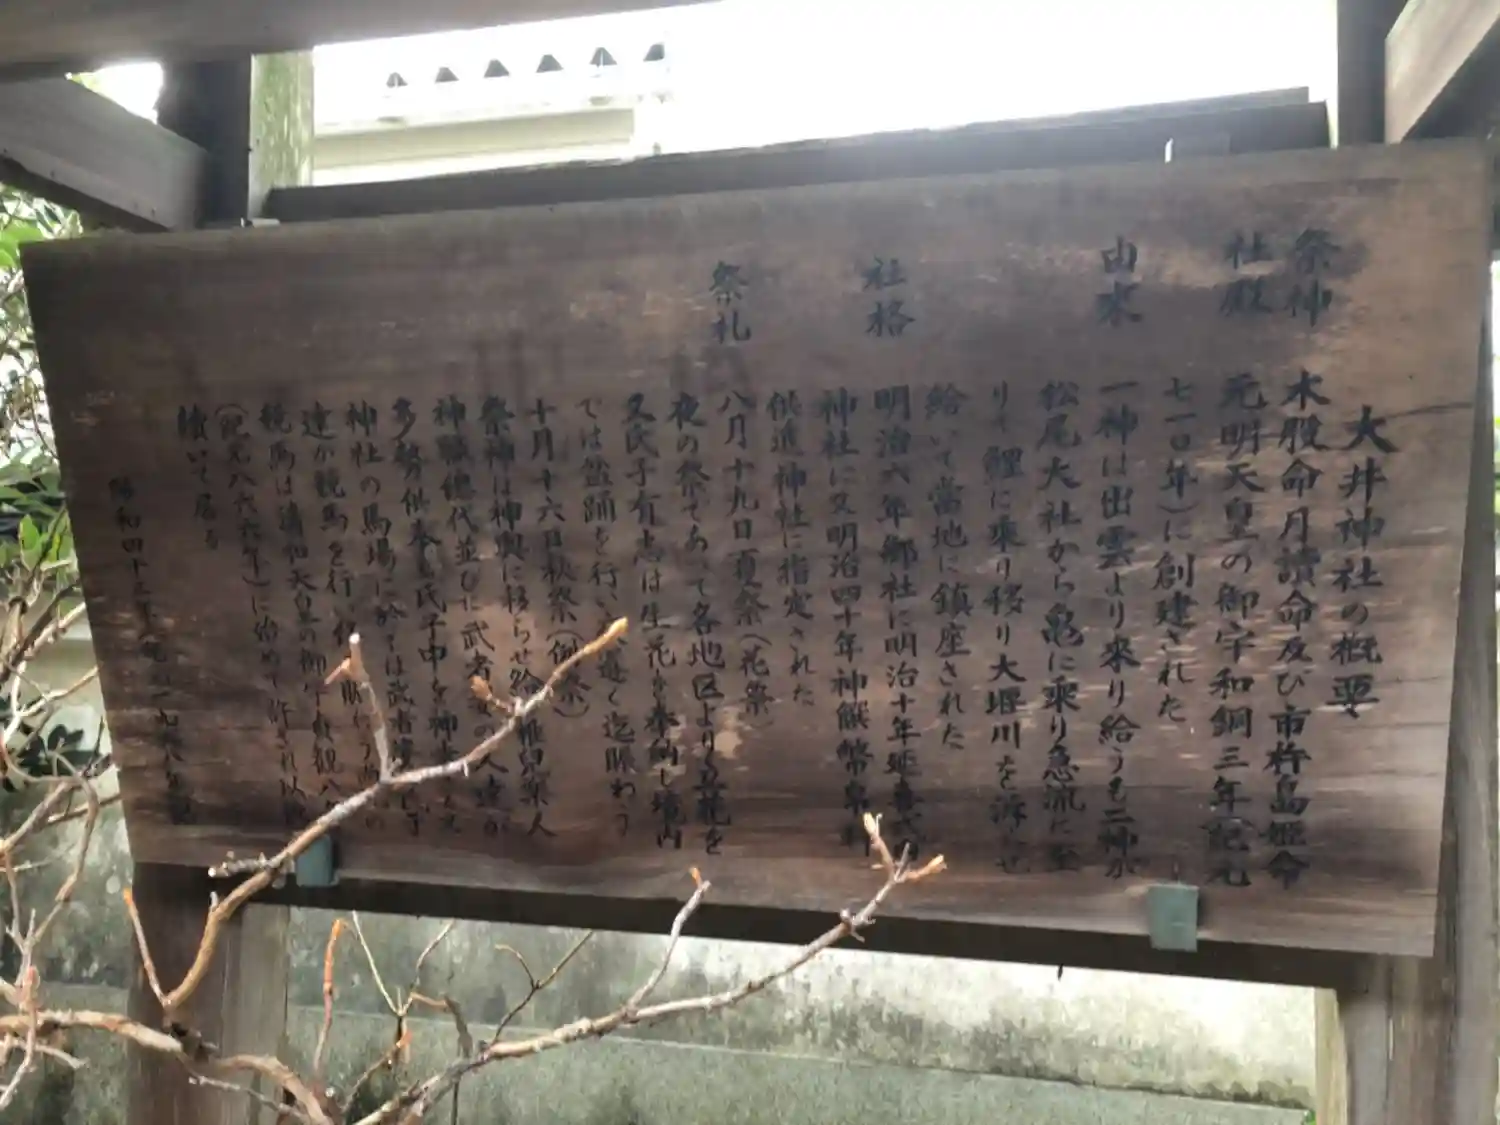 大井神社の概要
祭神 木股命月讀命及び市杵島姫命
社殿 元明天皇の御宇和銅三年(紀元
七一〇年)に創建された
由来 一神は出雲より来り給うも二神が
松尾大社から亀に乗り急流に至
りて鯉に乗り移り大堰川を遡らせ
給いて當地に鎮座された
社格 明治六年郷社に明治十年延喜式内
神社に又明治四十年神饌幣帛料
供進神社に指定された
祭礼 八月十九日夏祭(花祭)
夜の祭であって各地区より
又氏子有志は生花を奉納し境内
では盆踊を行い 遅く迄賑わう
十月十六日秋祭(例祭)
祭神は神輿に移らせ給 稚児楽人
神職總代並びに武者 の人達が
多勢供奉 氏子中を神
神社の馬場に於ては武者
達が競馬を行い 賑
競馬は清和天皇の御宇貞観八
(紀元八六六年)に始めて許され以
續いて居る
昭和四十三年